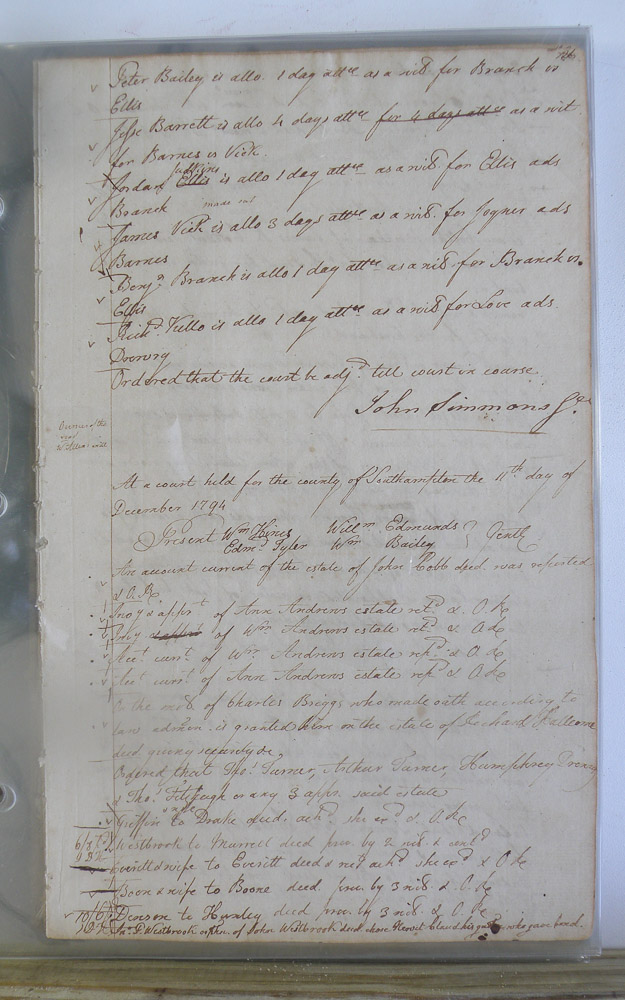 Peter Bailey is allo. 1 day attce as a wit for Branch vs
Ellis
Jesse Barrett is allo 4 days attce for 4 days attce as a wit
for Barnes vs Vick.
Judkins
Jordan Ellis is allo 1 day attce as a wits. for Ellis ads
Branch
James Vick is allo 3 days attce as a wits. for Joyner ads
Barnes
Benja. Branch is allo 1 day attce as a wits for Branch vs.
Ellis
Richd. Vello is allo 1 day attce as a wits for Love ads
Drewry
Ordered that the court be adjd. till court in course
John Simmons
At a court held for the county of Southampton the 11th day of
December 1794
Present Wm Hines Willm Edmunds
Edmd. Tyler Wm Bailey } Gentl
An account current of the estate of John Cobb decd. was reported
& O.R.
Invy & apprt of Ann Andrews estate retd & O. Re
Invy & apprt of Wm. Andrews estate retd. & O Re
Acct. curt. of Wm. Andrews estate repd & O Re
Acct. curt. of Ann Andrews estate repd & O Re
O the mo. of Charles Briggs who made oath according to
law admon. is granted him on the estate of
decd. giving security &c.
Ordered that Thos. Turner, Arthur Turner, Humphrey Drewry
& Thos. Fitzhugh or any 3 appr. said estate
Griffin to Drake deed ackd. she exd & O Re
Westbrook to Murrell deed prov. by 2 wits &
Everitt & wife to Everitt deed & ackd. she exd & O Re
Boon & wife to Boone deed prov. by 3 wits. & O. Re
to deed prov. by 3 wits & O. Re
Westbrook orphn. of John Westbrook decd. chose his who gave bond.